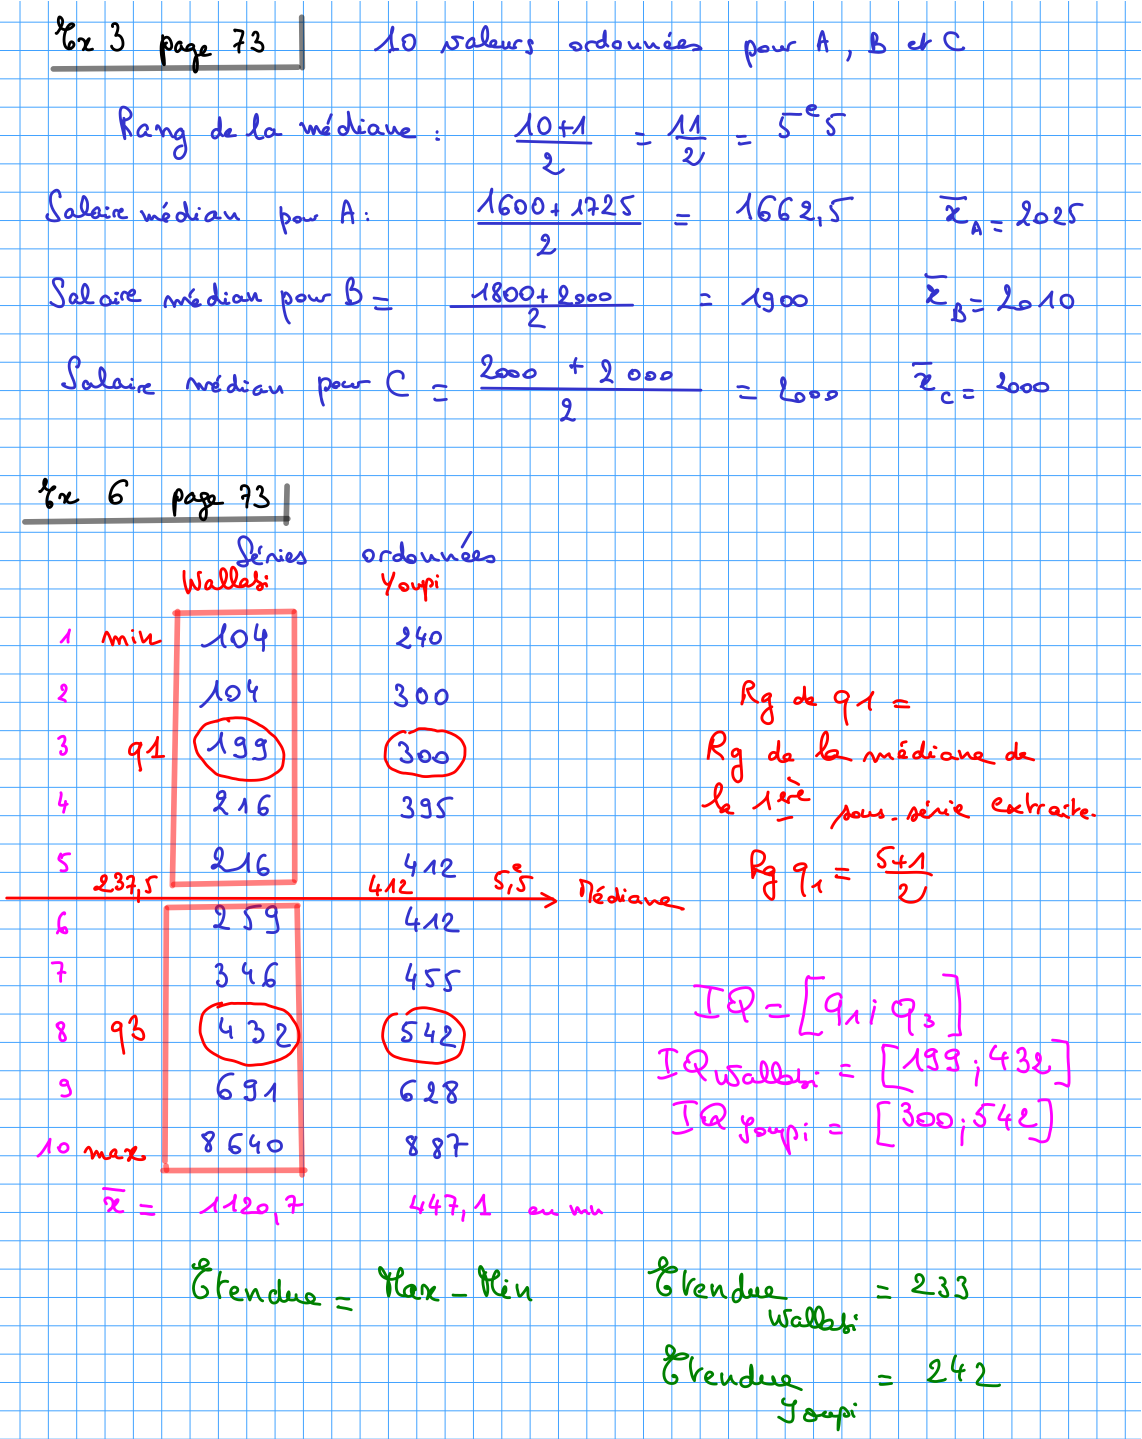 Ex 3 page 73 10 valeurs ordonnées pour A, B et C
Rang de la médiane : (10+1)/2 = 11/2 = 5e5
Salaire médian pour A: (1600+1725)/2 = 1662,5 x̄A = 2025
Salaire médian pour B = (1800+2000)/2 = 1900 x̄B = 2010
Salaire médian pour C = (2000 + 2000)/2 = 2000 x̄C = 2000
Ex 6 page 73
Séries ordonnées
Wallabi Youpi
1 min 104 240
2 104 300
3 q1 199 300
4 216 395
5 216 412
237,5 412 5,5e Médiane
6 259 412
7 346 455
8 q3 432 542
9 691 628
10 max 8640 887
x̄ = 1120,7 447,1 en mn
Rg de q1 =
Rg de la médiane de
la 1ère sous-série extraite.
Rg q1 = (5+1)/2
IQ = [q1; q3]
IQ Wallabi = [199; 432]
IQ Youpi = [300; 542]
Etendue = Max - Min
Etendue Wallabi = 233
Etendue Youpi = 242